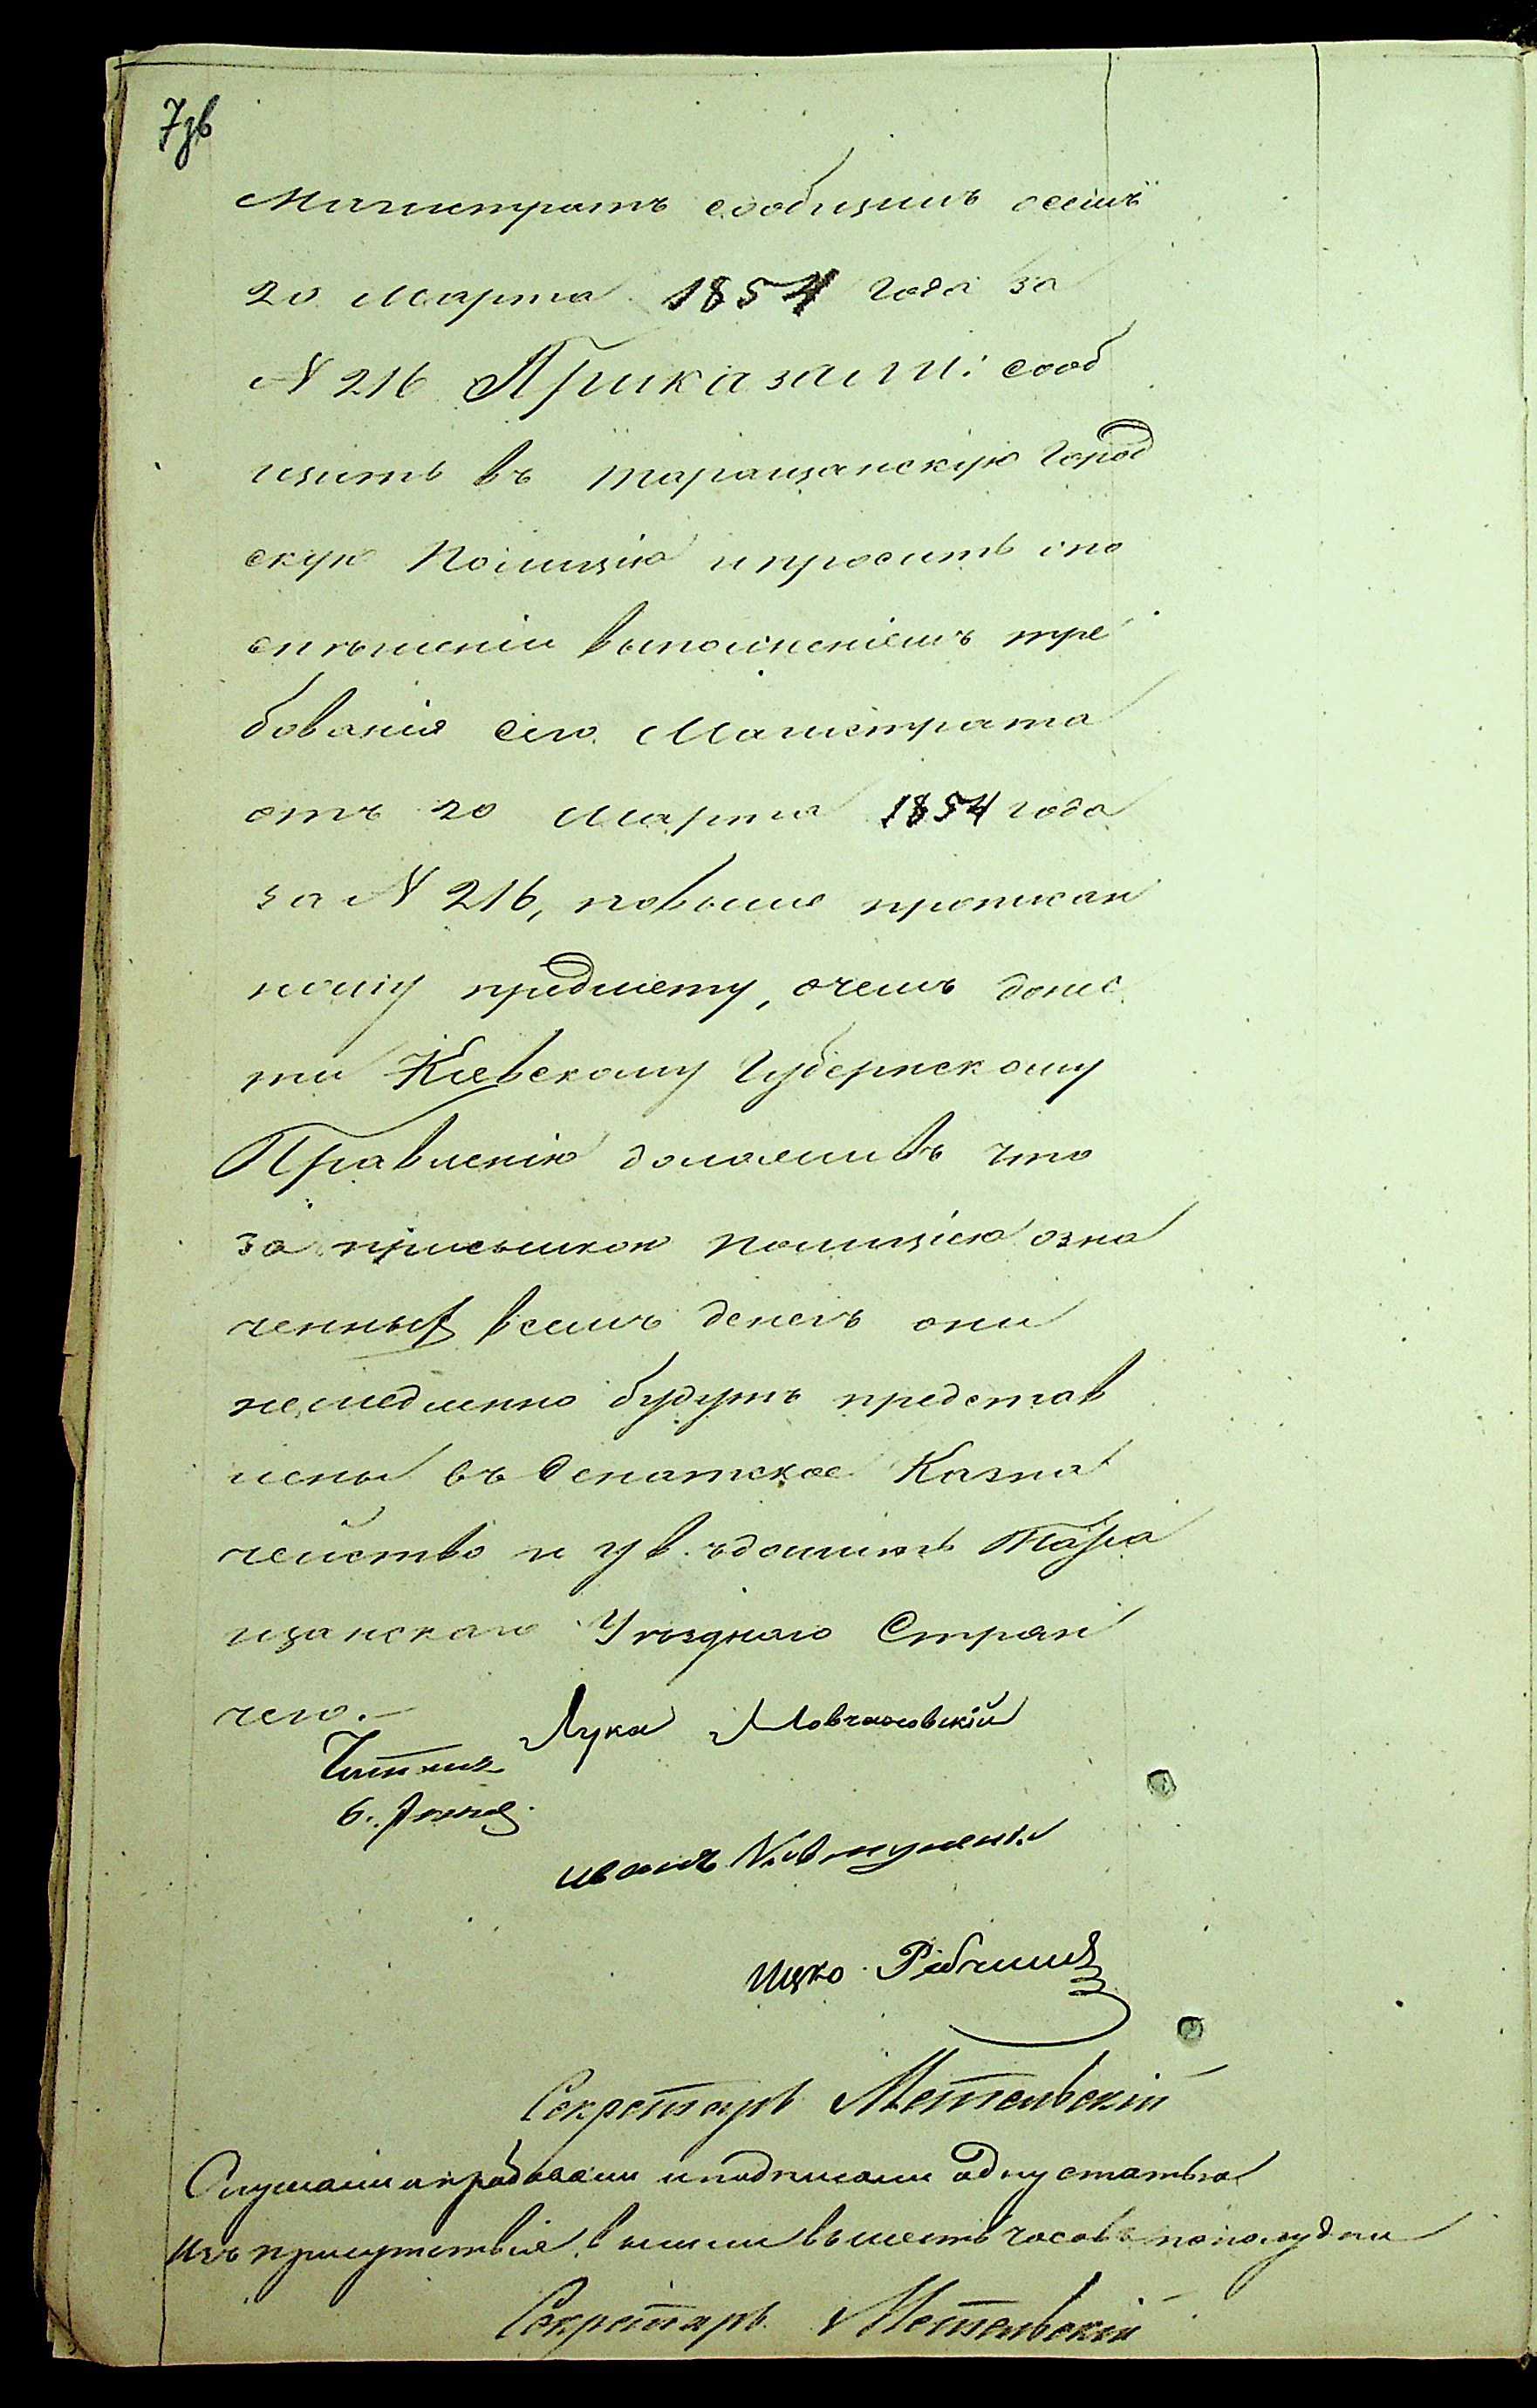 7зв
Магистратъ сообщилъ осемъ
20 Марта 1854 года за
N 216 Приказали: сооб
щить въ таращанскую Город
скую Полицію и просить о по
спѣшеніи выполненіемъ тре
бованія сего Магистрата
отъ 20 Марта 1854 года
за N 216, по выше прописан
ному предмету, о чемъ донес
ти Кіевскому Губернскому
Правленію доложивъ что
за присылкою Полиціею озна
ченныхъ всемъ денегъ они
немедленно будутъ представ
лены въ Сенатское Казна
чейство и увѣдомить Тара
щанскаго Уѣзднаго Стряп
чего.—
Лука Мовчановскій
Читалъ
6.
иванъ
Ицко
Секретарь Метельскій
Слушали и подписали одну статью
Изъ присутствія вышли въ шесть часовъ пополудни
Секретарь Метельскій